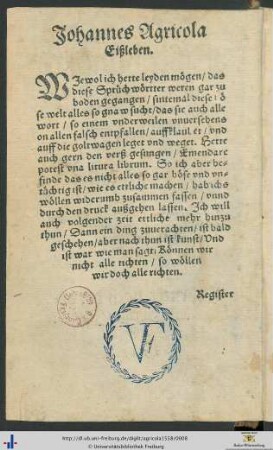 Johannes Agricola
Eißleben.
WJewol ich hette leyden mögen / das
diese Sprüchwörtter weren gar zu
boden gegangen / sintemal diese
se welt alles so gnaw sucht / das sie auch alle
wort / so einem vnderweilen vnuersehens
on allen falsch entpfallen / auffklaubt / vnd
auff die goltwagen leget vnd weget. Hette
auch gern den verß gesungen / Emendare
potest vna litura librum. So ich aber be-
finde das es nicht alles so gar böse vnd vn-
tüchtig ist / wie es ettliche machen / hab ichs
wöllen widerumb zusammen fassen / vnnd
durch den druck außgehen lassen. Jch will
auch / volgender zeit ettliche mehr hinzu
thun / Dann ein ding zuuerachten / ist bald
geschehen / aber nach thun ist kunst / Vnd
ist war wie man sagt: Können wir
nicht alle tichten / so wöllen
wir doch alle richten.
Register
VF
http://dl.ub.uni-freiburg.de/diglit/agricola1558/0008
© Universitätsbibliothek Freiburg